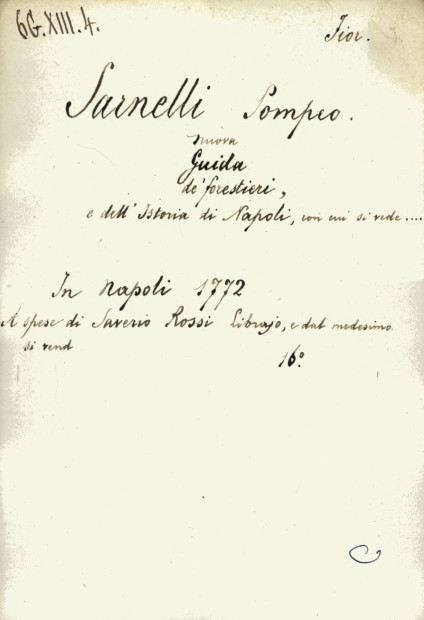 6G.XIII.4.
Fior.
Sarnelli Pompeo.
nuova
Guida
de' forestieri,
e dell' Istoria di Napoli, con cui si vede....
In Napoli 1772
A spese di Saverio Rossi Librajo, e dal medesimo
si vend
16°